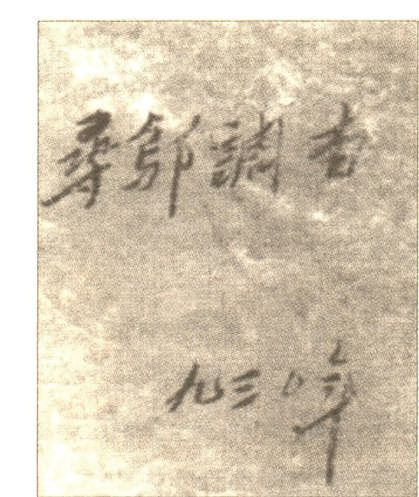 尋鄔調查
九三〇年